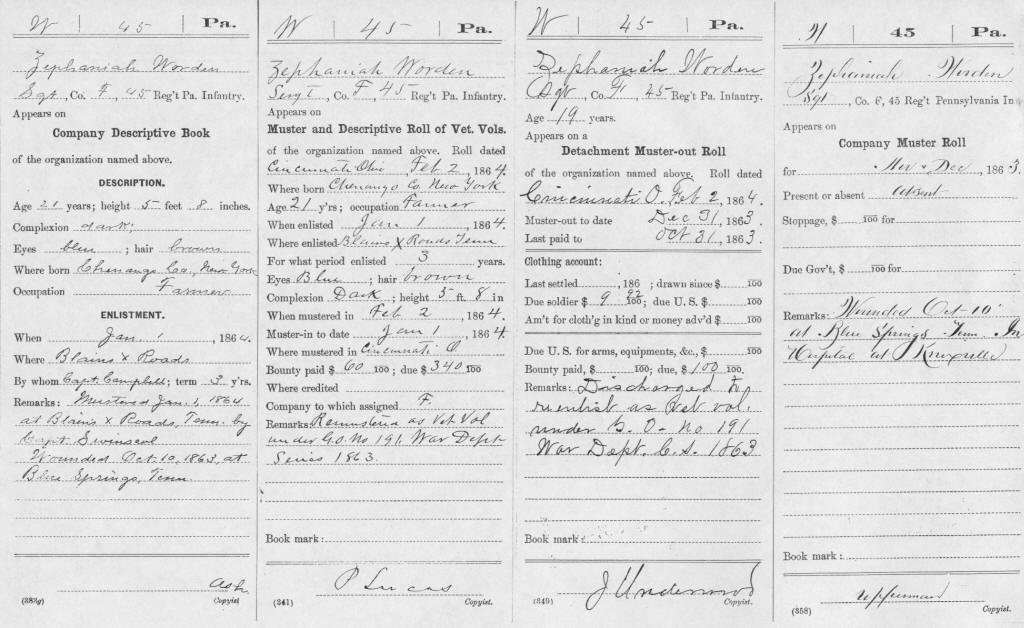 W | 45 | Pa.
Zephaniah Worden
Sgt, Co. F, 45 Reg't Pa. Infantry.
Appears on
Company Descriptive Book
of the organization named above.
DESCRIPTION.
Age 21 years; height 5 feet 8 inches.
Complexion dark;
Eyes blue; hair brown
Where born Chenango Co., New York
Occupation Farmer
ENLISTMENT.
When Jan. 1, 1864.
Where Blains X Roads
By whom Capt. Campbell; term 3 y'rs.
Remarks: Mustered Jan. 1, 1864
at Blains X Roads, Tenn. by
Capt.
Wounded Oct. 10, 1863, at
Blue Springs, Tenn.
Ash
(383g) Copyist.
W | 45 | Pa.
Zephaniah Worden
Sergt, Co. F, 45 Reg't Pa. Infantry.
Appears on
Muster and Descriptive Roll of Vet. Vols.
of the organization named above. Roll dated
Cincinnati Ohio Feb 2, 1864.
Where born Chenango Co. New York
Age 21 y'rs; occupation Farmer
When enlisted Jan. 1, 1864.
Where enlisted Blains X Roads Tenn
For what period enlisted 3 years.
Eyes Blue; hair brown
Complexion Dark; height 5 ft. 8 in
When mustered in Feb 2, 1864.
Muster-in to date Jan 1, 1864.
Where mustered in Cincinnati O.
Bounty paid $ 60 100; due $ 340 100
Where credited
Company to which assigned F.
Remarks: Remustered as Vet Vol
under G.O. No 191. War Dept
Series 1863.
Book mark:
P Lucas
(341) Copyist.
W | 45 | Pa.
Zephaniah Worden
Sgt, Co. F, 45 Reg't Pa. Infantry.
Age 19 years.
Appears on a
Detachment Muster-out Roll
of the organization named above. Roll dated
Cincinnati O. Feb 2, 1864.
Muster-out to date Dec 31, 1863.
Last paid to Oct 31, 1863.
Clothing account:
Last settled, 186 ; drawn since $ 100
Due soldier $ 9 92 100; due U. S. $ 100
Am't for cloth'g in kind or money adv'd $ 100
Due U. S. for arms, equipments, &c., $ 100
Bounty paid, $ 100; due, $ 100 100
Remarks: Discharged to
reenlist as vet vol.
under G. O. No 191
War Dept. C.S. 1863
Book mark:
J Underwood
(349) Copyist.
W | 45 | Pa.
Zephaniah Worden
Sgt, Co. F, 45 Reg't Pennsylvania In
Appears on
Company Muster Roll
for Nov & Dec, 1863.
Present or absent Absent
Stoppage, $ 100 for
Due Gov't, $ 100 for
Remarks: Wounded Oct 10
at Blue Springs Tenn. In
Hospital at Knoxville
Book mark:
(358) Copyist.